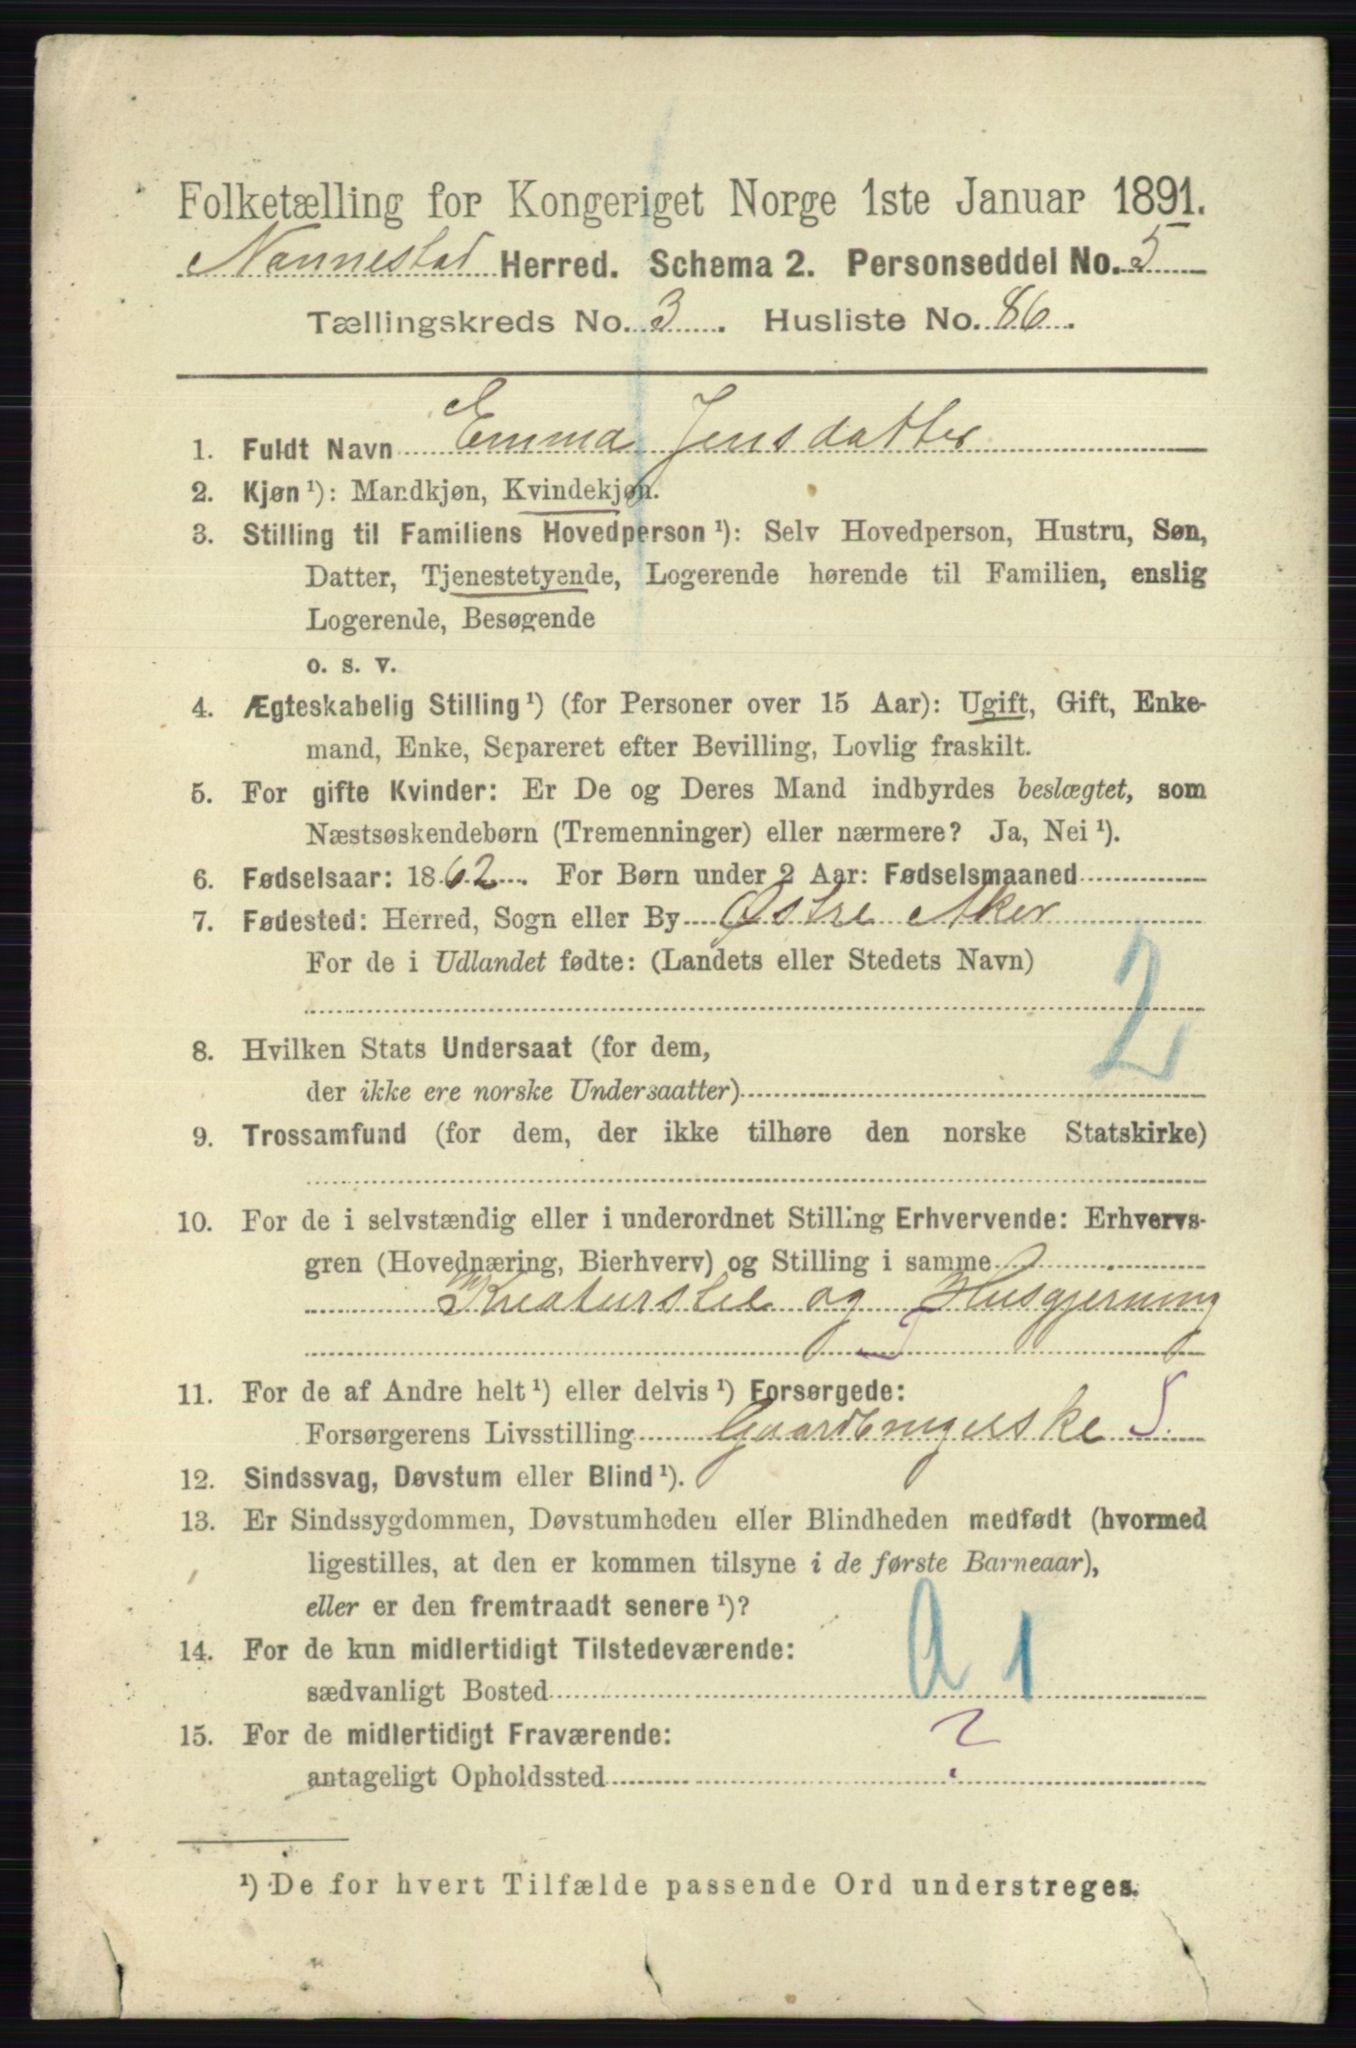 Folketælling for Kongeriget Norge 1ste Januar 1891.
Nannestad Herred. Schema 2. Personseddel No. 5
Tællingskreds No. 3. Husliste No. 86.
1. Fuldt Navn Emma Jensdatter
2. Kjøn¹): Mandkjøn, Kvindekjøn.
3. Stilling til Familiens Hovedperson¹): Selv Hovedperson, Hustru, Søn,
Datter, Tjenestetyende, Logerende hørende til Familien, enslig
Logerende, Besøgende
o. s. v.
4. Ægteskabelig Stilling¹) (for Personer over 15 Aar): Ugift, Gift, Enke-
mand, Enke, Separeret efter Bevilling, Lovlig fraskilt.
5. For gifte Kvinder: Er De og Deres Mand indbyrdes beslægtet, som
Næstsøskendebørn (Tremenninger) eller nærmere? Ja, Nei¹).
6. Fødselsaar: 1862. For Børn under 2 Aar: Fødselsmaaned
7. Fødested: Herred, Sogn eller By Østre Aker
For de i Udlandet fødte: (Landets eller Stedets Navn)
2
8. Hvilken Stats Undersaat (for dem,
der ikke ere norske Undersaatter)
9. Trossamfund (for dem, der ikke tilhøre den norske Statskirke)
10. For de i selvstændig eller i underordnet Stilling Erhvervende: Erhvervs-
gren (Hovednæring, Bierhverv) og Stilling i samme
Kreaturstel og Husgjerning
11. For de af Andre helt¹) eller delvis¹) Forsørgede:
Forsørgerens Livsstilling Gaardbrugerske S.
12. Sindssvag, Døvstum eller Blind¹).
13. Er Sindssygdommen, Døvstumheden eller Blindheden medfødt (hvormed
ligestilles, at den er kommen tilsyne i de første Barneaar),
eller er den fremtraadt senere¹)?
14. For de kun midlertidigt Tilstedeværende:
sædvanligt Bosted a 1
15. For de midlertidigt Fraværende:
antageligt Opholdssted ?
¹) De for hvert Tilfælde passende Ord understreges.